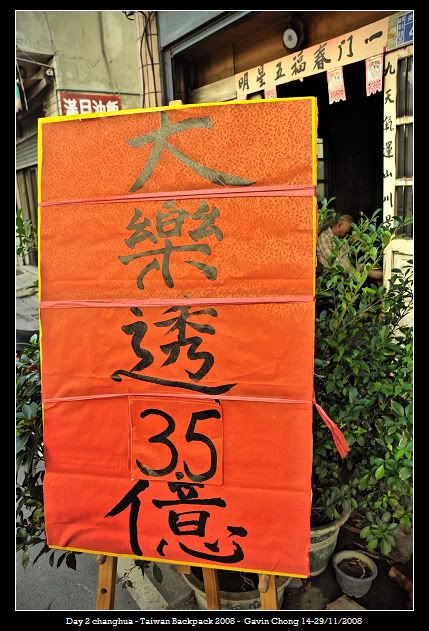 滿月油飯
一門春福五星明
九天氣運山川
大
樂
透
35
億
Day 2 changhua - Taiwan Backpack 2008 - Gavin Chong 14-29/11/2008